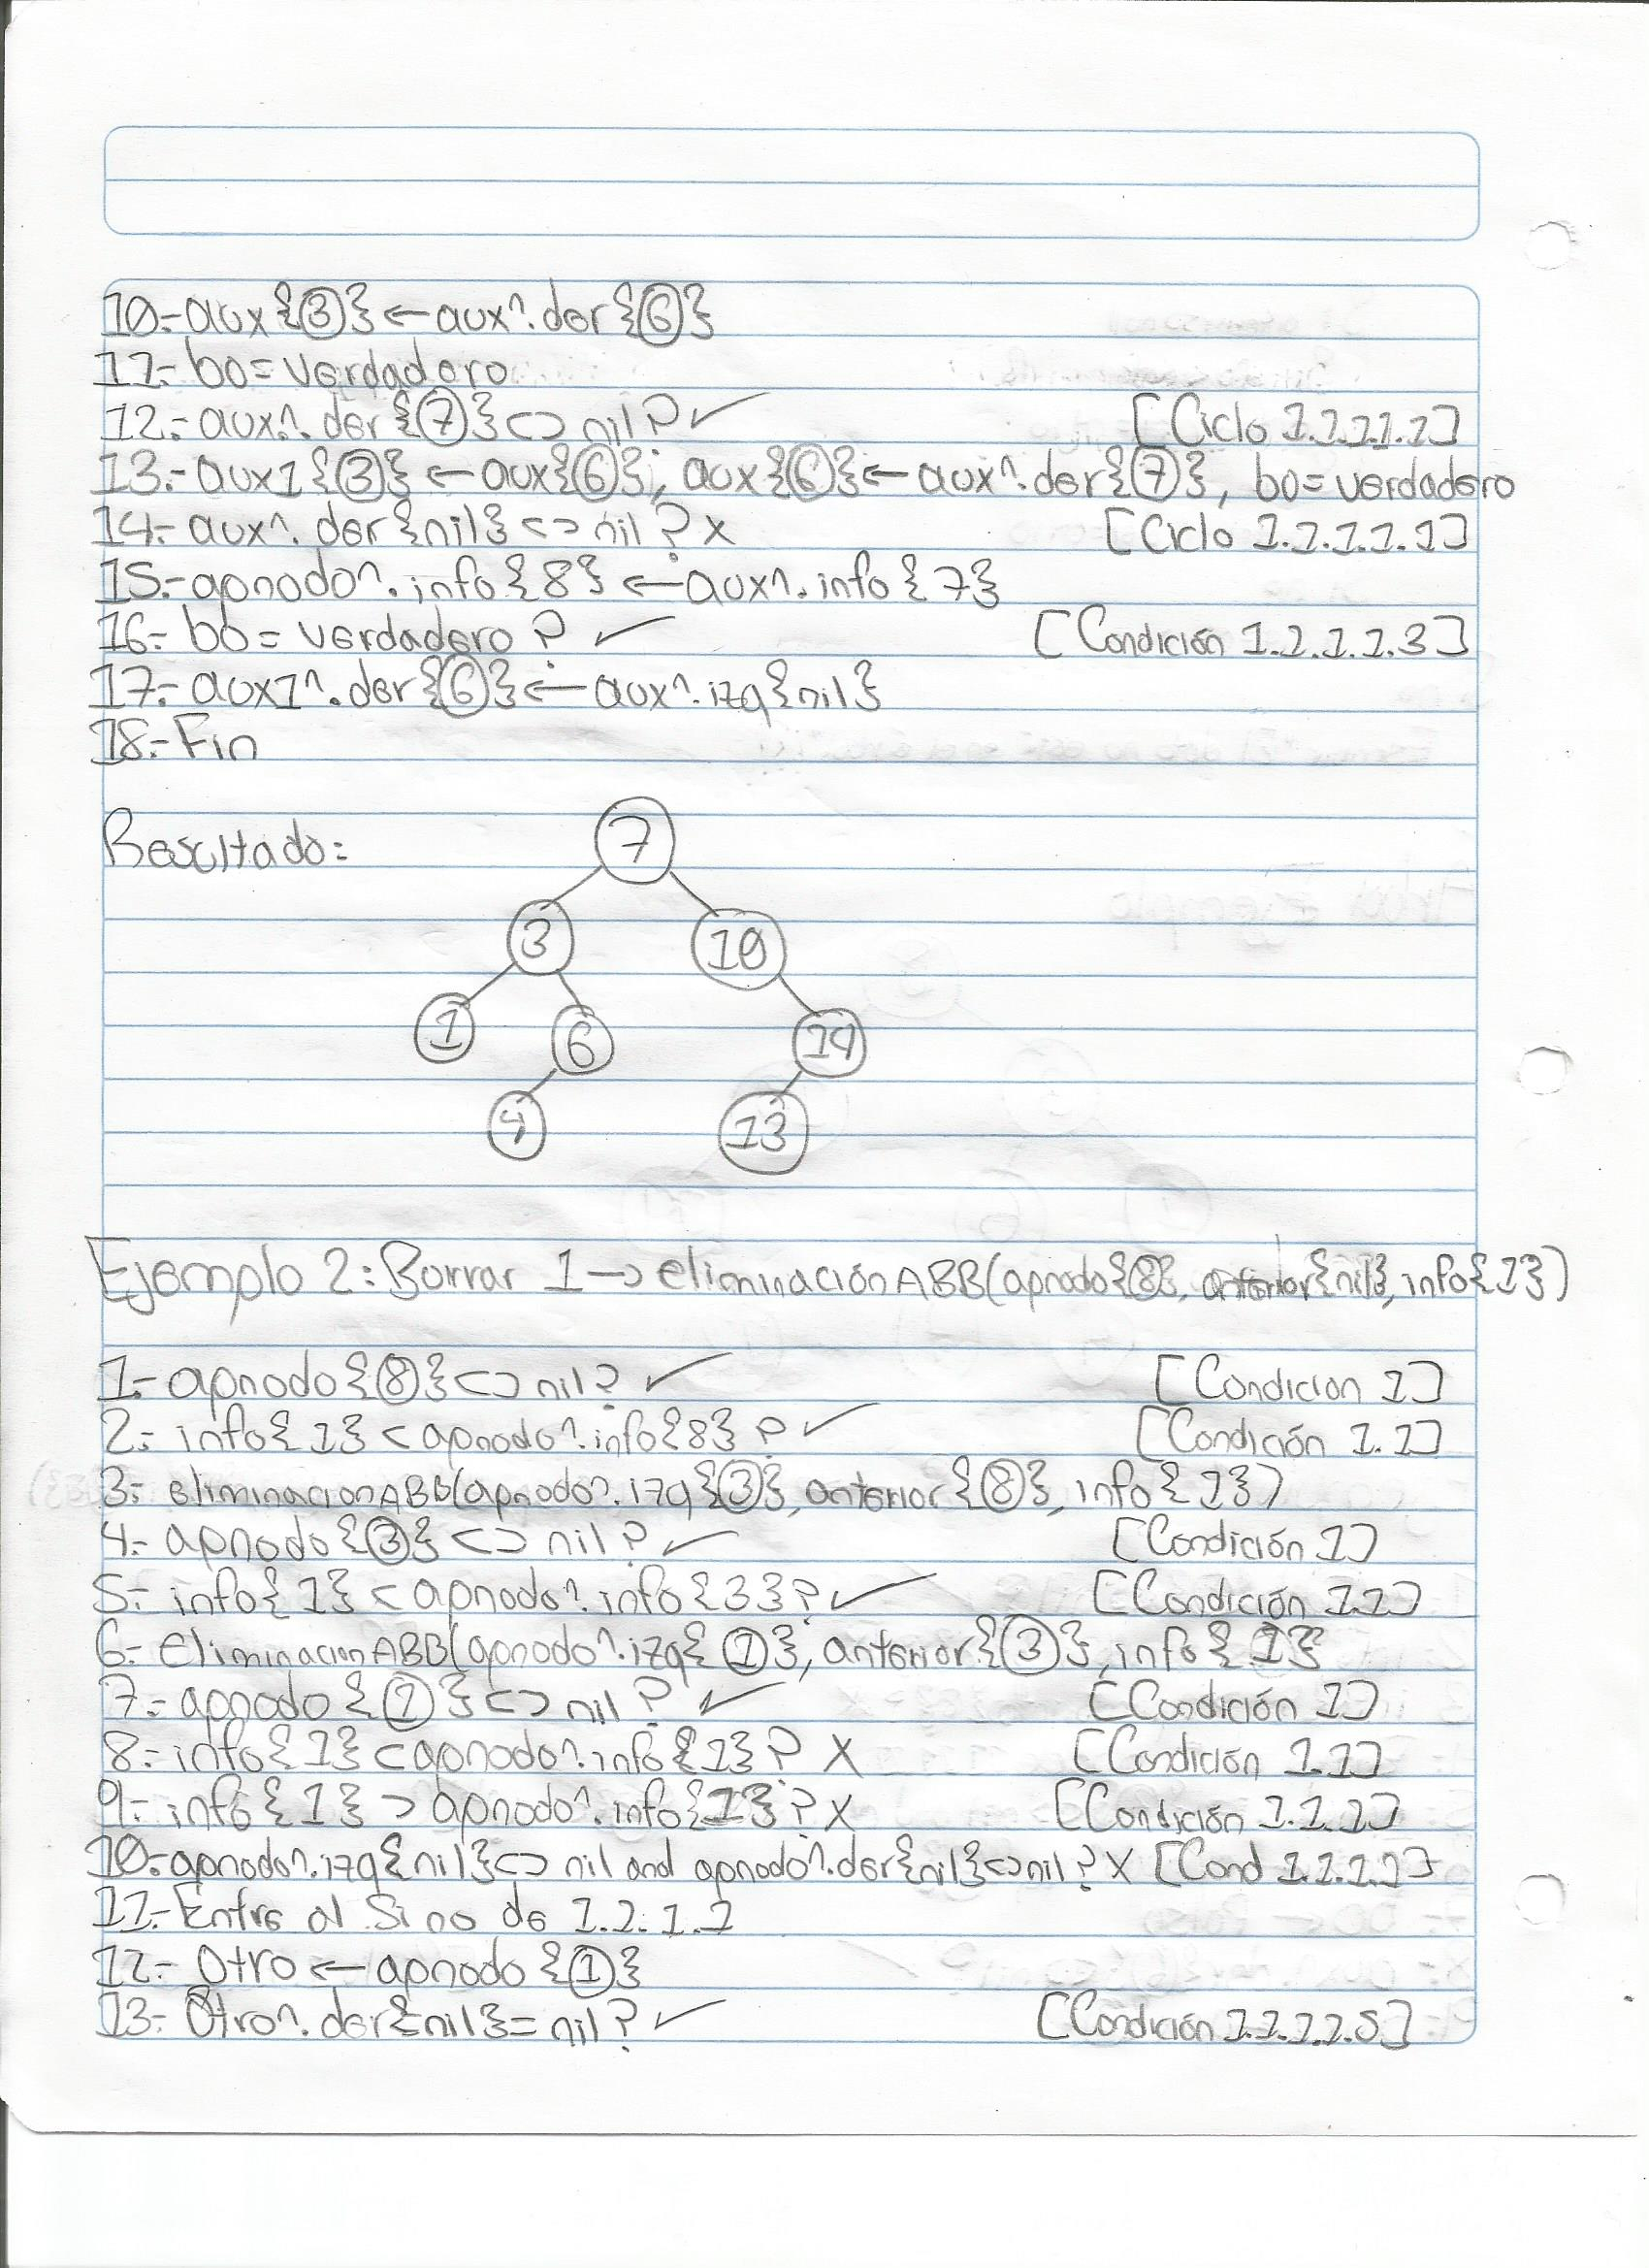 10.- aux{③} ← aux^.der{⑥}
11.- bo = verdadero
12.- aux^.der{⑦} <> nil? ✓ [Ciclo 1.1.1.1.1]
13.- aux1{③} ← aux{⑥}, aux{⑥} ← aux^.der{⑦}, bo = verdadero
14.- aux^.der{nil} <> nil? X [Ciclo 1.1.1.1.1]
15.- apnodo^.info{8} ← aux^.info{7}
16.- bo = verdadero? ✓ [Condición 1.1.1.1.3]
17.- aux1^.der{⑥} ← aux^.izq{nil}
18.- Fin
Resultado:
7
3 10
1 6 14
4 13
Ejemplo 2: Borrar 1 → eliminaciónABB(apnodo{⑧}, anterior{nil}, info{1})
1.- apnodo{⑧} <> nil? ✓ [Condicion 1]
2.- info{1} < apnodo^.info{8}? ✓ [Condición 1.1]
3.- eliminacionABB(apnodo^.izq{③}, anterior{⑧}, info{1})
4.- apnodo{③} <> nil? ✓ [Condición 1]
5.- info{1} < apnodo^.info{3}? ✓ [Condición 1.1]
6.- EliminacionABB(apnodo^.izq{①}, anterior{③}, info{1}
7.- apnodo{①} <> nil? ✓ [Condición 1]
8.- info{1} < apnodo^.info{1}? X [Condición 1.1]
9.- info{1} > apnodo^.info{1}? X [Condición 1.1.1]
10.- apnodo^.izq{nil} <> nil and apnodo^.der{nil} <> nil? X [Cond 1.1.1.1]
11.- Entra al Si no de 1.1.1.1
12.- Otro ← apnodo{①}
13.- Otro^.der{nil} = nil? ✓ [Condición 1.1.1.1.5]